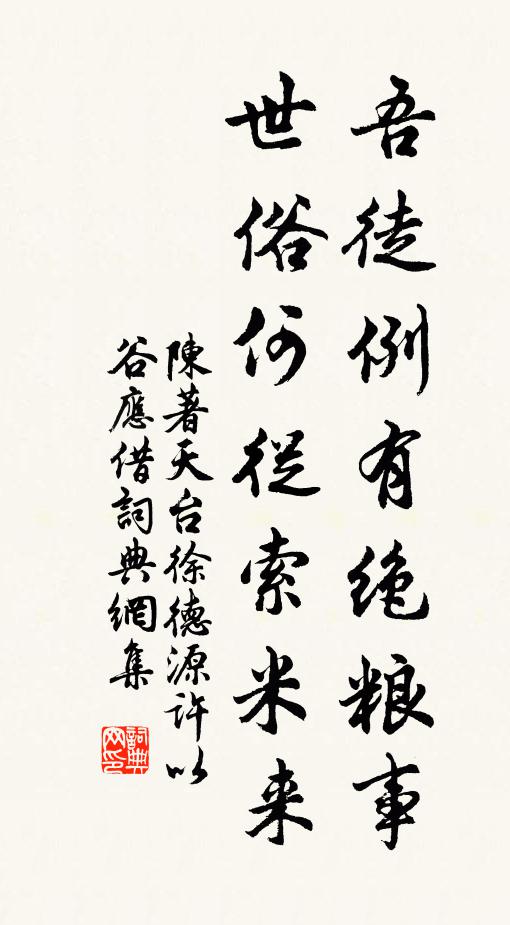 吾徒例有绝粮事
世俗何從索米来
陳著天台徐德源許以
谷應借詞典網集
詞典网印